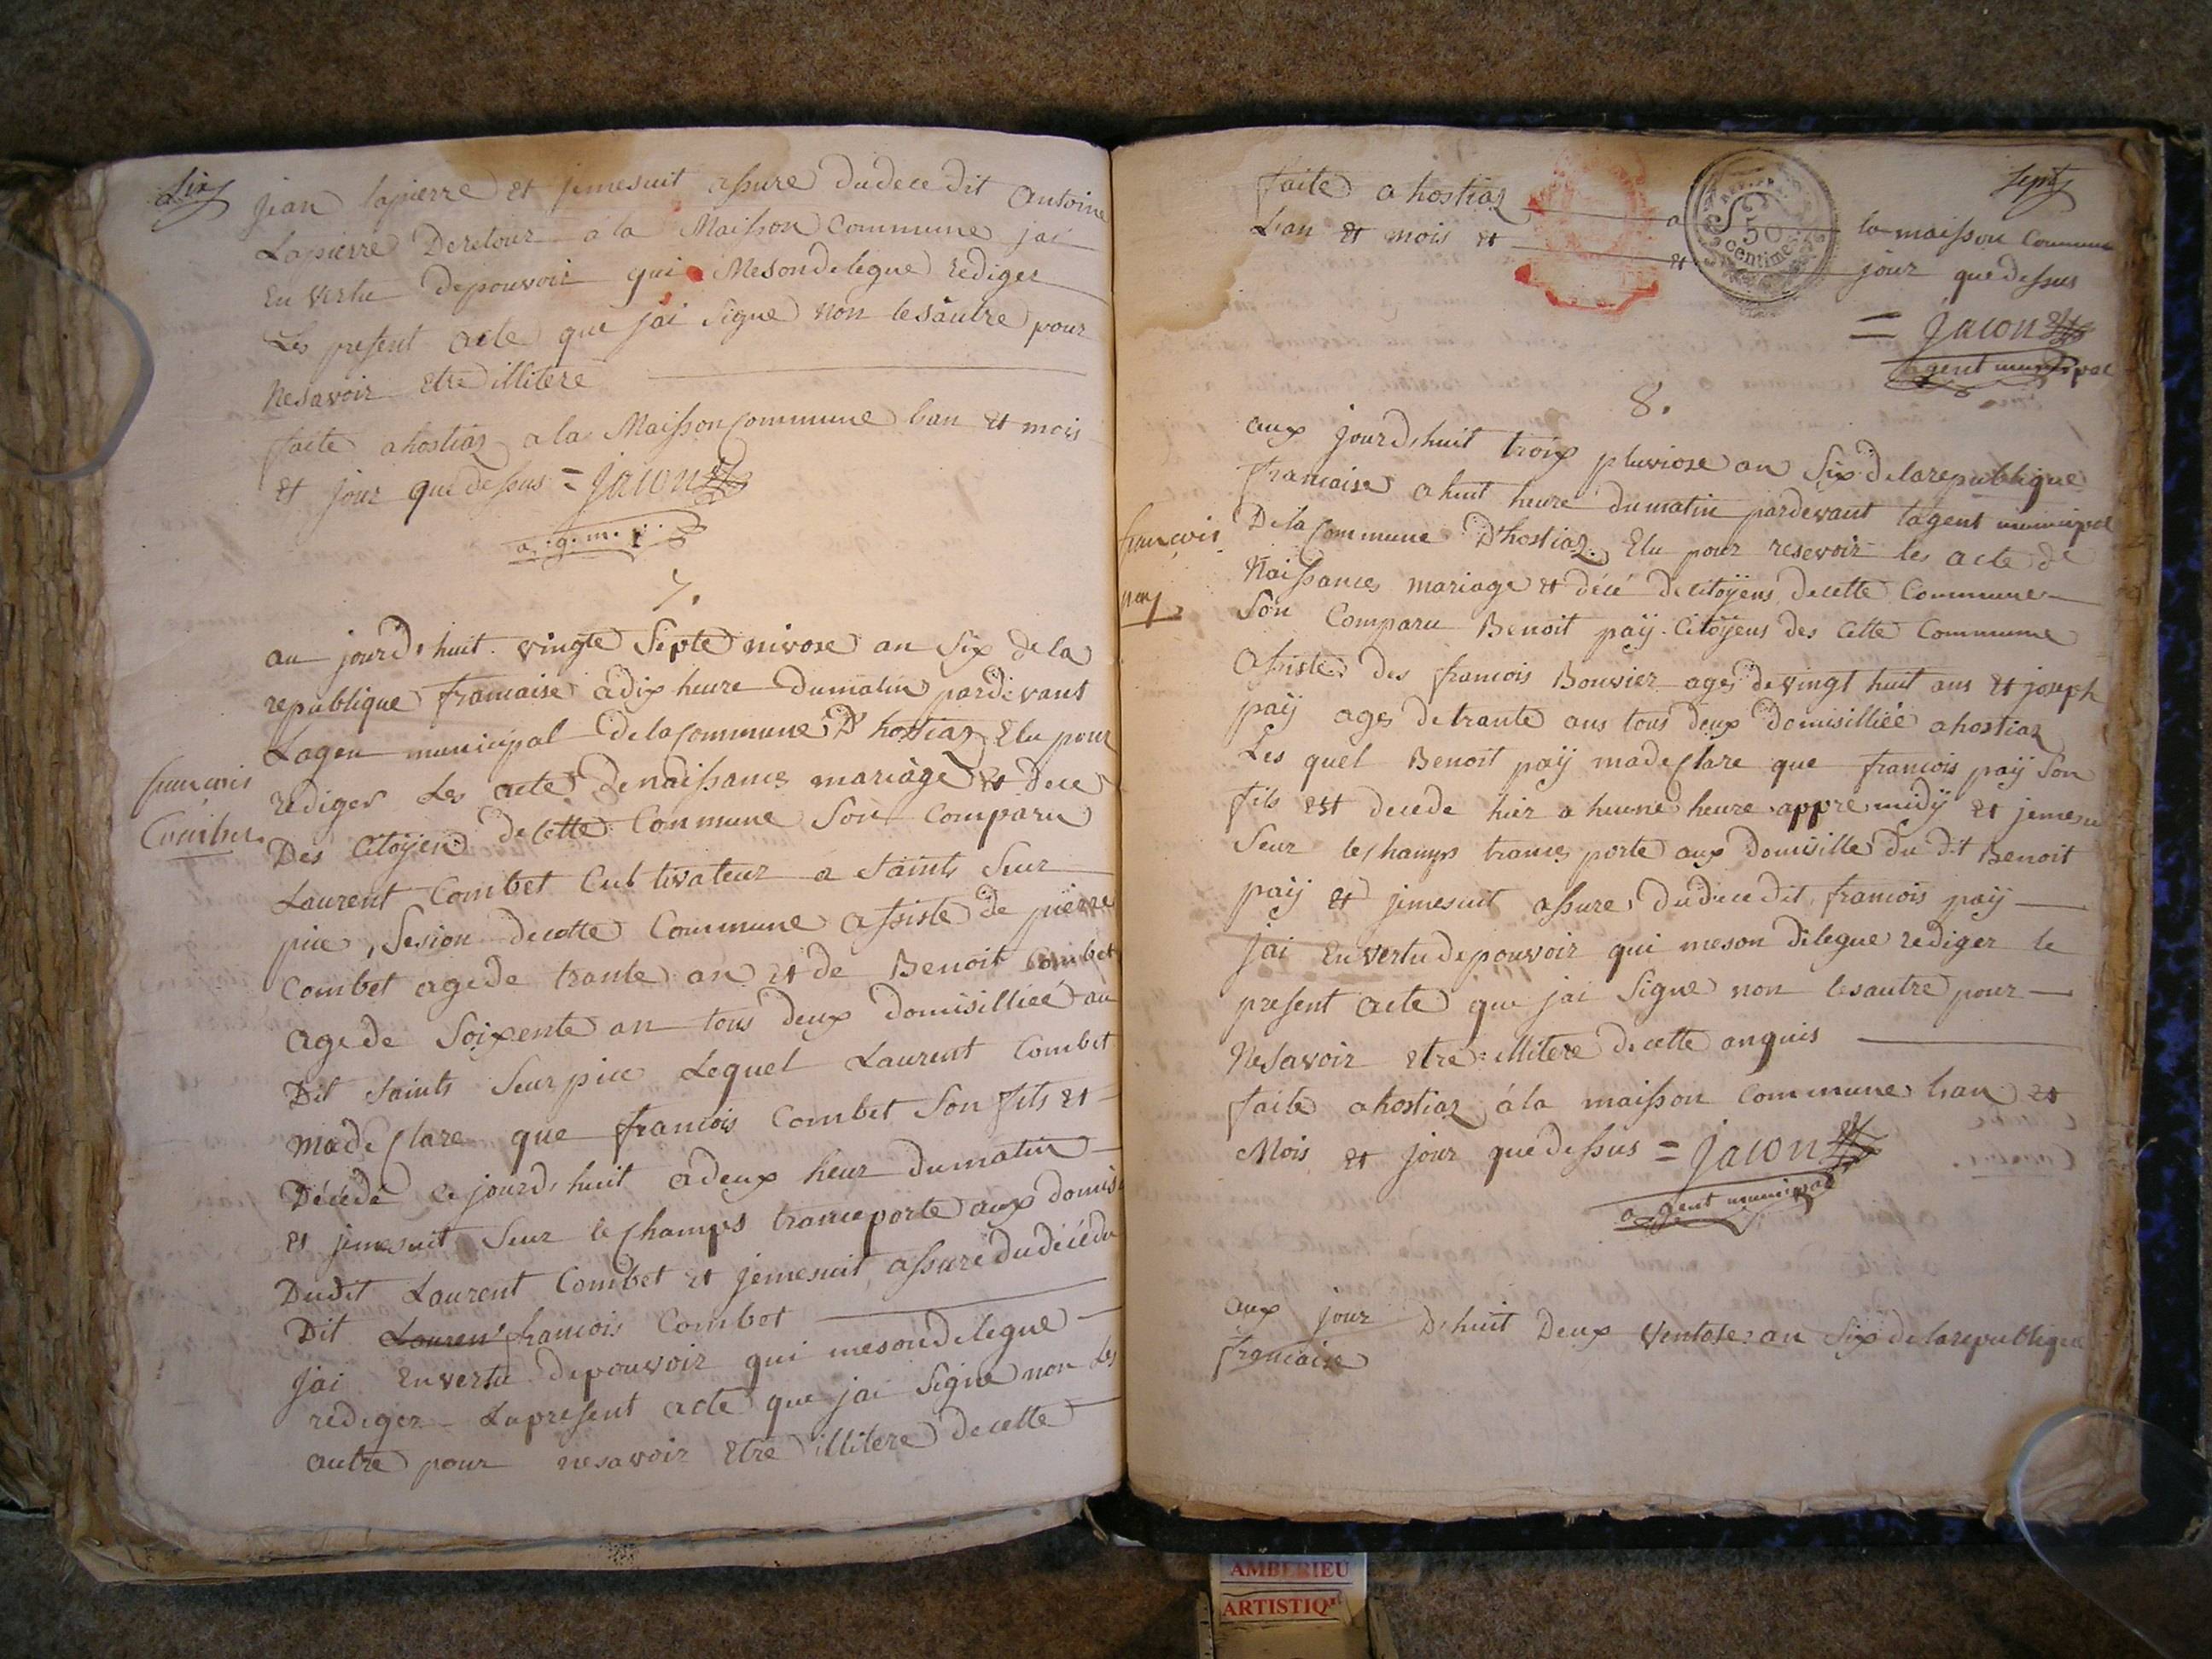 Six
jean lapierre et jemesuit assure dudece dit antoine
Lapierre Deretour a la Maisson Commune jai
En vertu depouvoir qui Mesondelegue rediger
Les present acte que jai signe non lesautre pour
Nesavoir etre illitere
faite a hostiaz a la Maisson Commune lan et mois
et jour que dessus = jacon
a.g.m.
7.
francois
Combet
au jourd'huit vingte Septe nivose an Six de la
republique francaise a dix heure dumatin pardevant
Lagen municipal delacommune D'hostiaz Elu pour
rediger Les acte denaissances mariage et dece
Des Citoÿen decette Commune Son Comparu
Laurent Combet Cultivateur a Saints Seur
pice, Sesion decette Commune assiste de pierre
Combet agede trante an et de Benoit Combet
agede Soixente an tous deux domisilliéé au
Dit Saints Seurpice Lequel Laurent Combet
madeclare que francois Combet Son fils et
Décédé ce jourd'huit adeux heur dumatin
et jemesuit Seur le Champs tranceporte aux domisi
Dudit Laurent Combet et jemesuit assuré dudécédu
Dit Lauren francois Combet
Jai En vertu depouvoir qui mesondelegue
rediger Lepresent acte que jai Signe non Les
autre pour nesavoir Etre illitere decette
Sept
faite a hostiaz a la maisson Commune
Lan et mois et et jour que dessus
50
centimes
= Jacon
agent municipal
8.
francois
paÿ
aux jourd'huit troix pluviose an Six delarepublique
francaise a huit heure dumatin pardevant lagent municipal
Dela Commune D'hostiaz Elu pour resevoir les acte de
Naissances mariage et décé decitoÿens decette Commune
Son Comparu Benoit paÿ Citoÿens des Cette Commune
assiste des francois Bouvier ages devingt huit ans et joseph
paÿ ages detrante ans tous deux domisilliéé a hostiaz
Les quel Benoit paÿ madeclare que francois paÿ Son
fils est decede hier a heune heure appre midÿ et jemesu
Seur leChamps trancs porte aux domisille du dit Benoit
paÿ et jemesuit assure dudece dit francois paÿ
jai En vertu depouvoir qui meson delegue rediger le
present acte que jai Signe non lesautre pour
Nesavoir etre illitere decette anquis
faite a hostiaz á la maisson Commune lran et
Mois et jour quedessus = jacon
agent municipal
aux jour Dhuit Deux Ventose an Six delarepublique
francaise
AMBERIEU
ARTISTIQ